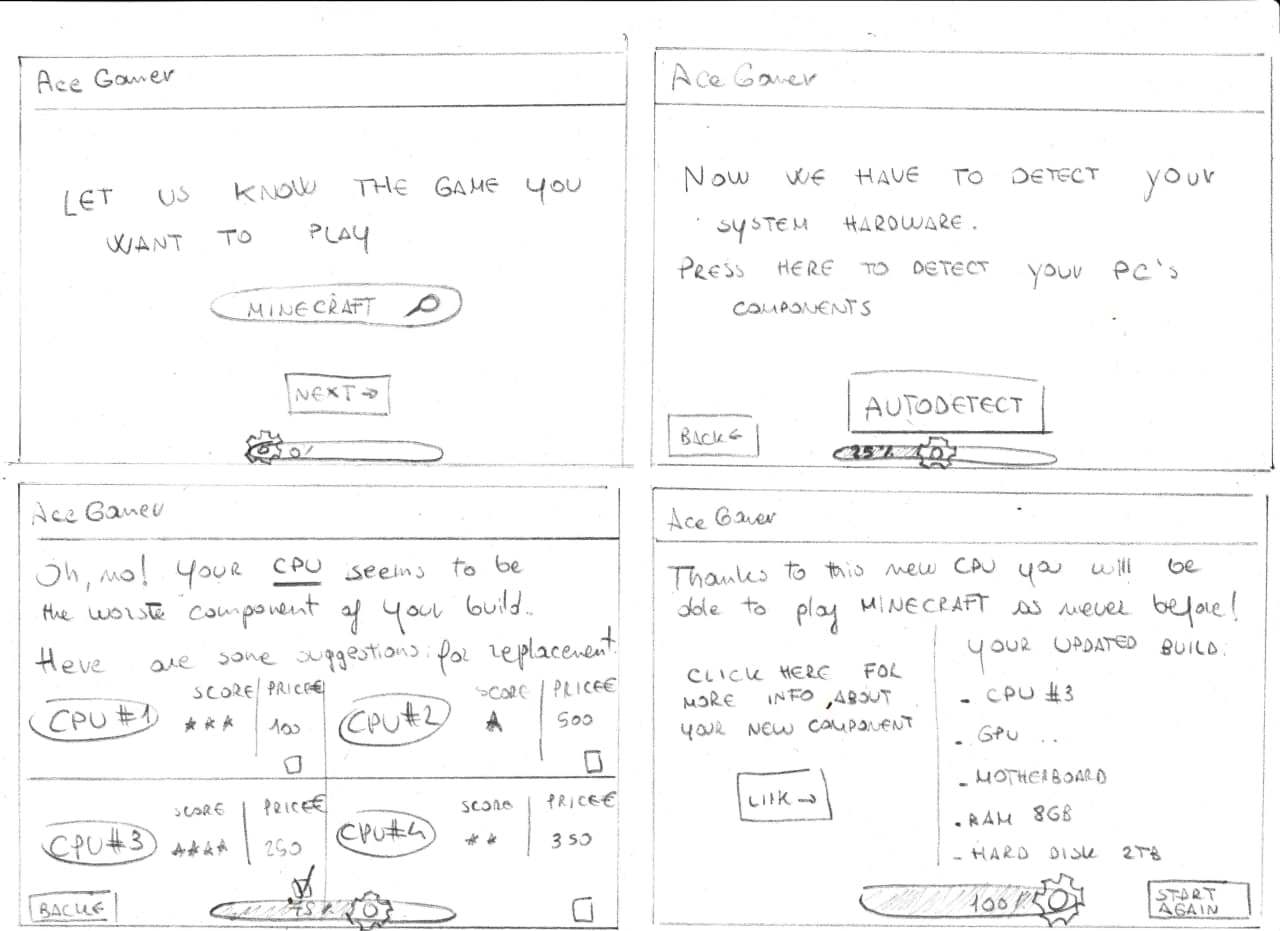 Ace Gamer
LET US KNOW THE GAME YOU
WANT TO PLAY
MINECRAFT
NEXT →
0%
Ace Gamer
NOW WE HAVE TO DETECT YOUR
SYSTEM HARDWARE.
PRESS HERE TO DETECT YOUR PC'S
COMPONENTS
AUTODETECT
BACK ←
25%
Ace Gamer
Oh, no! YOUR CPU seems to be
the worste component of your build..
Here are some suggestions for replacement.
SCORE PRICE €
CPU #1 ★★★ 100
SCORE PRICE €
CPU #2 ★ 500
SCORE PRICE €
CPU #3 ★★★★ 250
SCORE PRICE €
CPU #4 ★★ 350
BACK ←
75%
Ace Gamer
Thanks to this new CPU you will be
able to play MINECRAFT as never before!
CLICK HERE FOR
MORE INFO ABOUT
YOUR NEW COMPONENT
LINK →
YOUR UPDATED BUILD:
- CPU #3
- GPU ..
- MOTHERBOARD
- RAM 8GB
- HARD DISK 2TB
100%
START
AGAIN